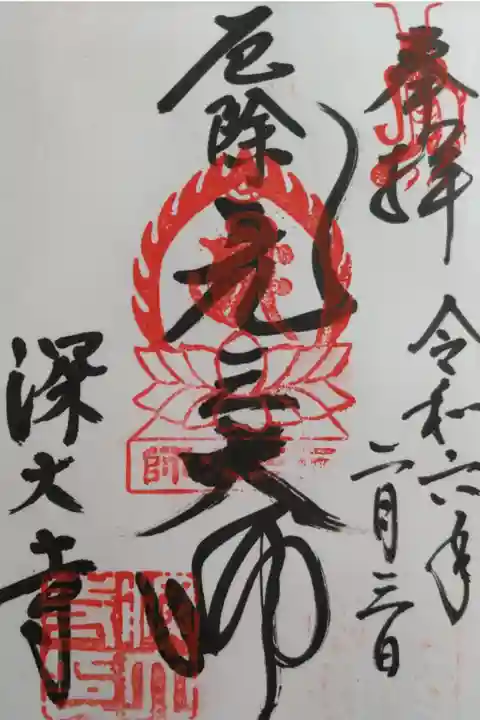 奉拝
令和六年
二月三日
厄除
元三大師
深大寺
師